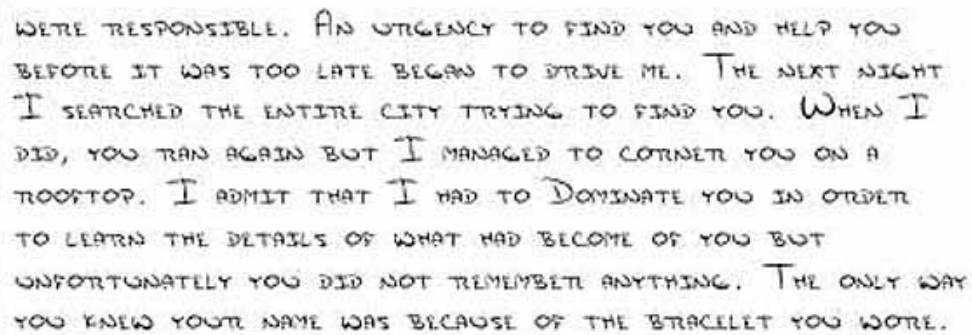 WERE RESPONSIBLE. AN URGENCY TO FIND YOU AND HELP YOU
BEFORE IT WAS TOO LATE BEGAN TO DRIVE ME. THE NEXT NIGHT
I SEARCHED THE ENTIRE CITY TRYING TO FIND YOU. WHEN I
DID, YOU RAN AGAIN BUT I MANAGED TO CORNER YOU ON A
ROOFTOP. I ADMIT THAT I HAD TO DOMINATE YOU IN ORDER
TO LEARN THE DETAILS OF WHAT HAD BECOME OF YOU BUT
UNFORTUNATELY YOU DID NOT REMEMBER ANYTHING. THE ONLY WAY
YOU KNEW YOUR NAME WAS BECAUSE OF THE BRACELET YOU WORE.